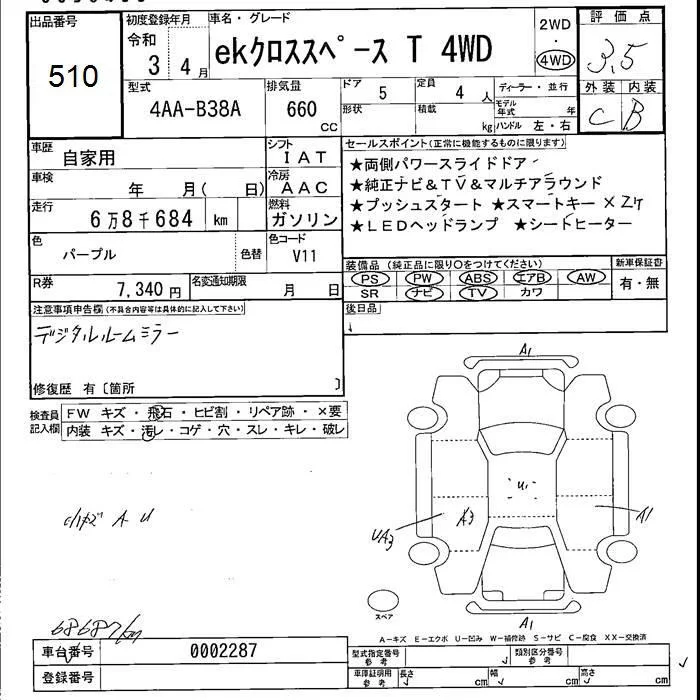 出品番号 初度登録年月 車名・グレード 2WD 評価点
510 令和 3年 4月 ekクロススペース T 4WD ・ 4WD 3.5
外装 内装
C B
型式 排気量 ドア 5 定員 4人 ディーラー・並行
4AA-B38A 660 cc 形状 積載 kg モデル年式 年
ハンドル 左・右
車歴 自家用 シフト IAT セールスポイント(正常に機能するものに限ります)
車検 年 月( 日) 冷房 AAC ★両側パワースライドドア
走行 6万8千684 km 燃料 ガソリン ★純正ナビ&TV&マルチアラウンド
★プッシュスタート ★スマートキー×2ケ
★LEDヘッドランプ ★シートヒーター
色 パープル 色替 色コード V11
装備品 (純正品に限り○をつけてください) 新車保証書
PS PW ABS エアB AW 有・無
SR ナビ TV カワ
R券 7,340円 名変通知期限 月 日 後日品
注意事項申告欄(不具合内容等は具体的に記入して下さい)
デジタルルームミラー
修復歴 有〔箇所 〕
検査員 FW キズ・飛石・ヒビ割・リペア跡・×要
記入欄 内装 キズ・汚レ・コゲ・穴・スレ・キレ・破レ
A1
U1
A U
UA3 A3 A1
スペア A1
68687km
A-キズ E-エクボ U-凹み W-補修跡 S-サビ C-腐食 XX-交換済
車台番号 0002287 型式指定番号 参考 類別区分番号 参考
登録番号 車庫証明用 参考 長さ cm 幅 cm 高さ cm